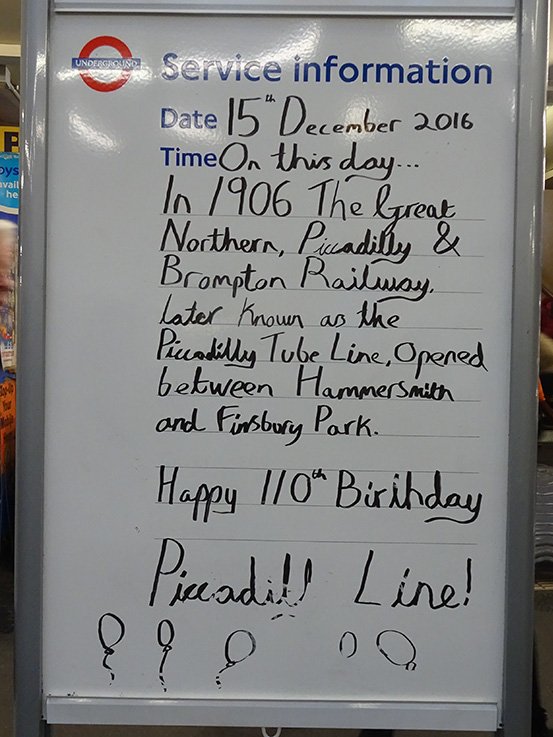 UNDERGROUND
Service information
Date 15th December 2016
Time On this day...
In 1906 The Great
Northern, Piccadilly &
Brompton Railway,
later known as the
Piccadilly Tube Line, Opened
between Hammersmith
and Finsbury Park.
Happy 110th Birthday
Piccadilly Line!